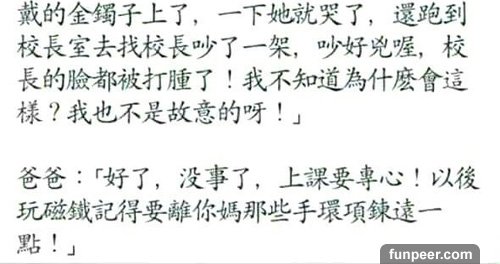 戴的金鐲子上了，一下她就哭了，還跑到
校長室去找校長吵了一架，吵好兇喔，校
長的臉都被打腫了！我不知道為什麼會這
樣？我也不是故意的呀！」
爸爸：「好了，沒事了，上課要專心！以後
玩磁鐵記得要離你媽那些手環項鍊遠一
點！」
funpeer.com